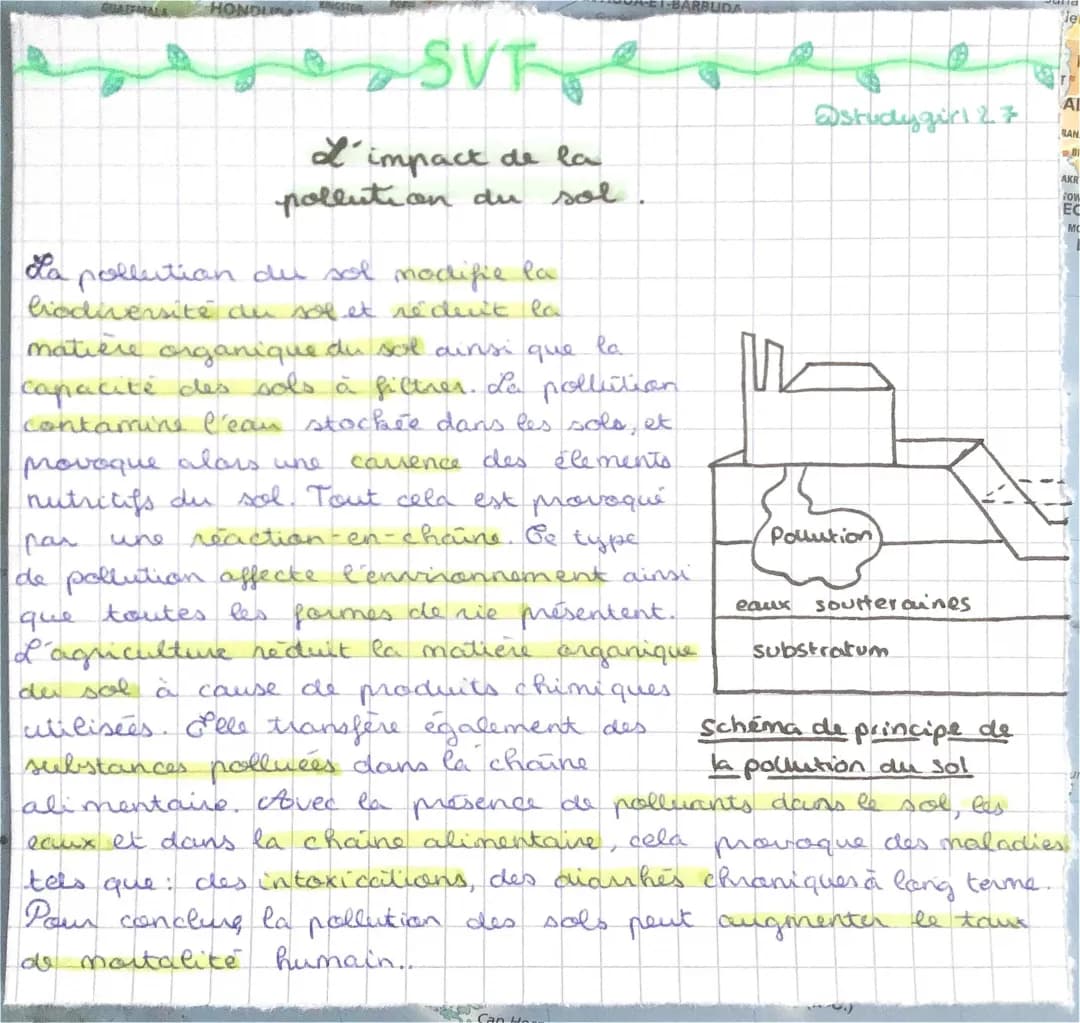 GUATEMALA HONDU KINGSTON UDA-ET-BARBUDA
SVT
@studygirl 2.7
L'impact de la
pollution du sol.
La pollution du sol modifie la
biodiversité du sol et réduit la
matière organique du sol ainsi que la
capacité des sols à filtrer. La pollution
contamine l'eau stockée dans les sols, et
provoque alors une carence des élements
nutritifs du sol. Tout cela est provoqué
par une réaction-en-chaîne. Ce type
de pollution affecte l'environnement ainsi
que toutes les formes de vie présentent.
L'agriculture réduit la matière organique
du sol à cause de produits chimiques
utilisées. Elle transfère également des
substances polluées dans la chaîne
alimentaire. Avec la présence de polluants dans le sol, les
eaux et dans la chaîne alimentaire, cela provoque des maladies
tels que : des intoxications, des diarrhés chroniques à long terme.
Pour conclure, la pollution des sols peut augmenter le taux
de mortalité humain..
Pollution
eaux soutteraines
substratum
Schéma de principe de
la pollution du sol